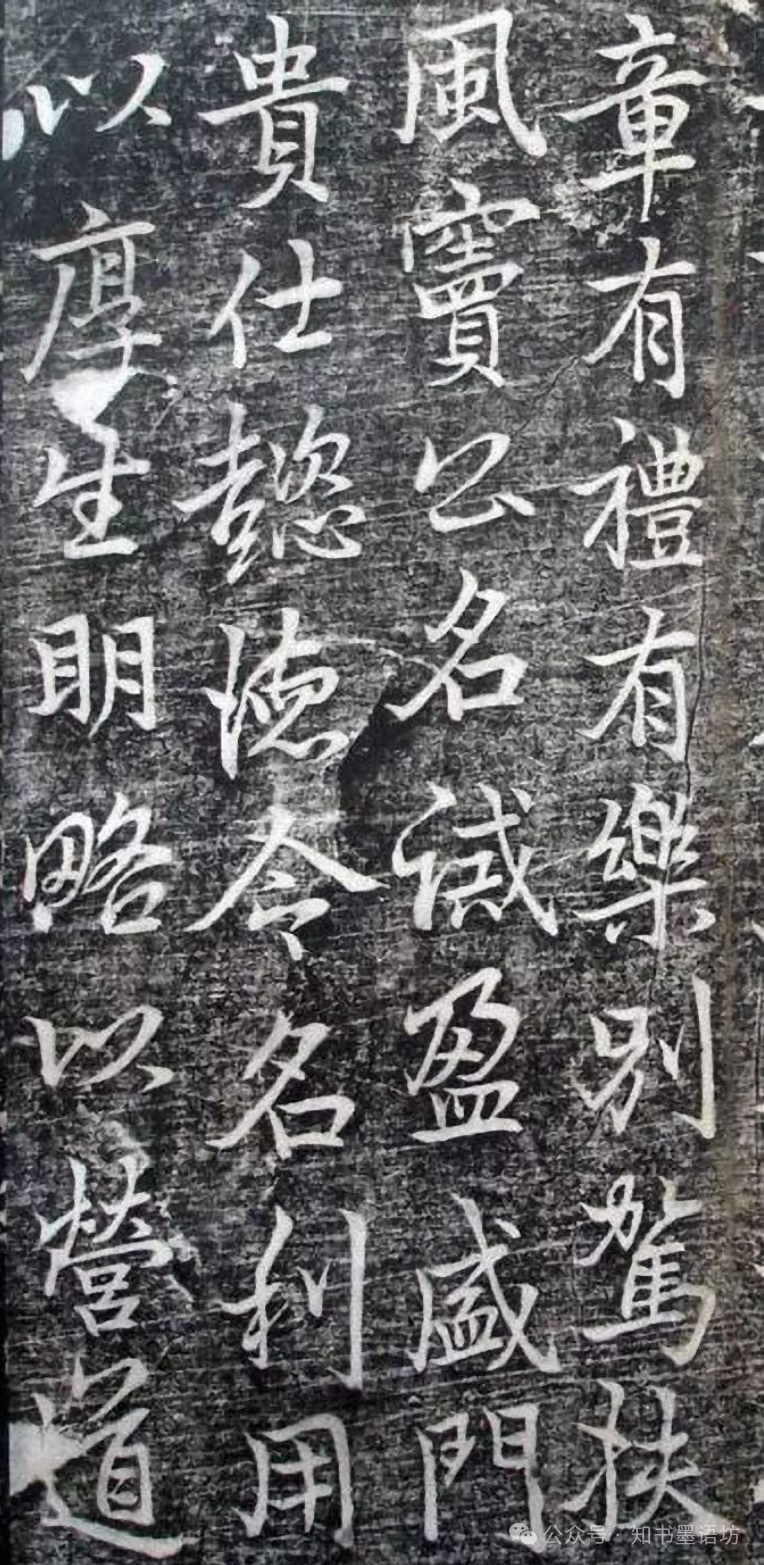 章有禮有樂別駕扶
風竇公名誡盈盛門
貴仕懿德令名利用
以厚生明略以營道
公众号 · 知书墨语坊